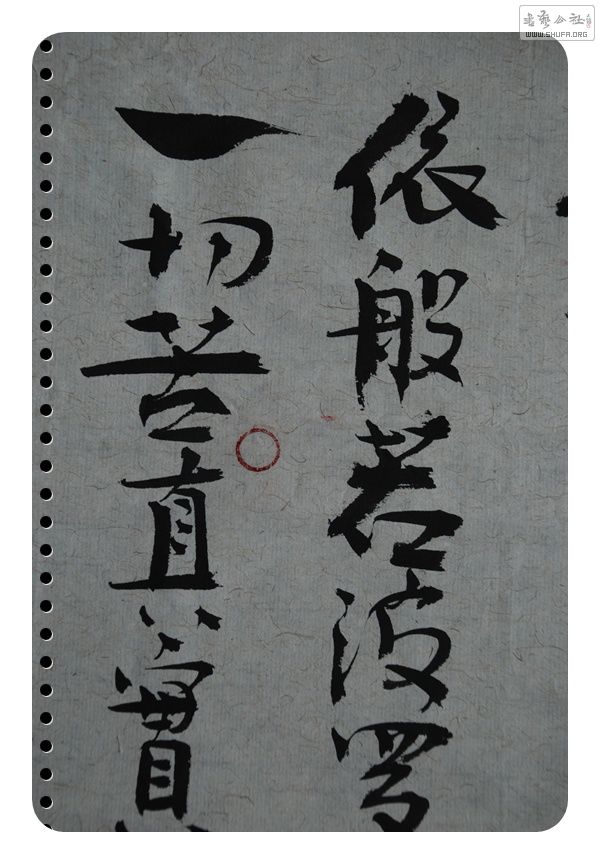 依般若波罗
一切苦真實
书藝公社
WWW.SHUFA.ORG